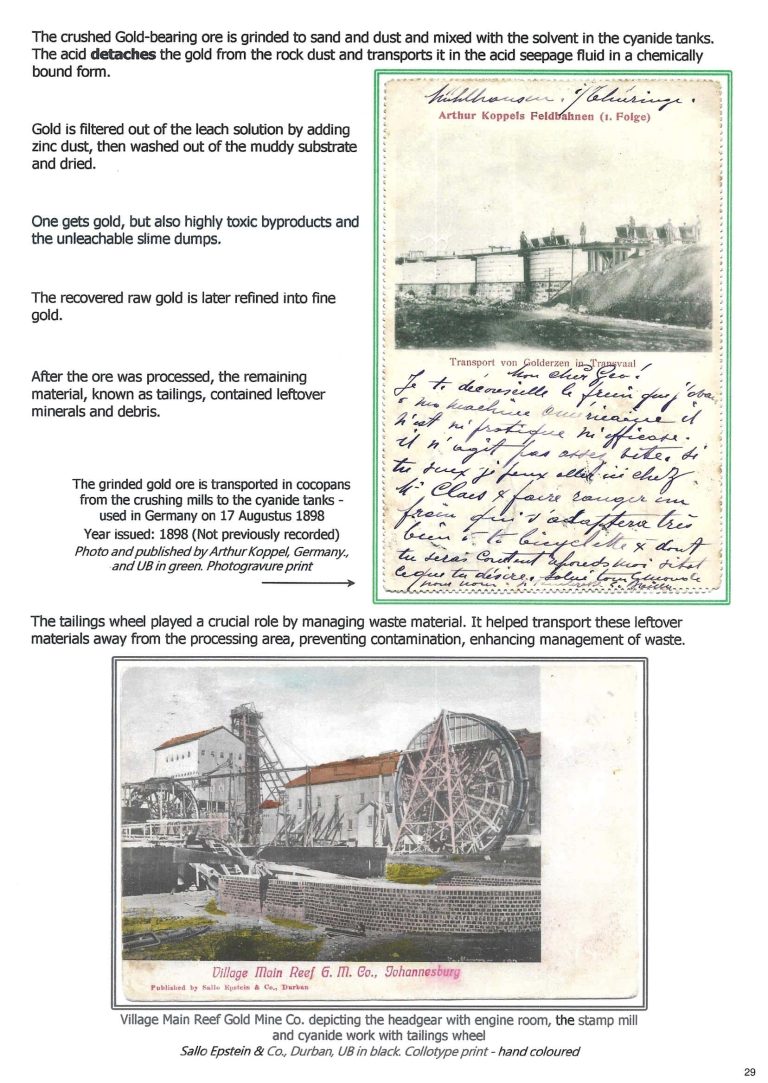 The crushed Gold-bearing ore is grinded to sand and dust and mixed with the solvent in the cyanide tanks.
The acid detaches the gold from the rock dust and transports it in the acid seepage fluid in a chemically
bound form.
Gold is filtered out of the leach solution by adding
zinc dust, then washed out of the muddy substrate
and dried.
One gets gold, but also highly toxic byproducts and
the unleachable slime dumps.
The recovered raw gold is later refined into fine
gold.
After the ore was processed, the remaining
material, known as tailings, contained leftover
minerals and debris.
The grinded gold ore is transported in cocopans
from the crushing mills to the cyanide tanks -
used in Germany on 17 Augustus 1898
Year issued: 1898 (Not previously recorded)
Photo and published by Arthur Koppel, Germany.,
and UB in green. Photogravure print
Mühlhausen. i/Thüringe.
Arthur Koppels Feldbahnen (1. Folge)
Transport von Golderzen in Transvaal
Mon cher Géo!
Je te déconseille le frein que j'
à ma machine américaine il
n'est ni pratique ni efficace.
il n'agit pas assez vite. si
tu veux je peux aller ici chez
Mr Claes & faire ranger un
frein qui s'adaptera très
bien à ta bicyclette & dont
tu seras content
ce que tu désire.
The tailings wheel played a crucial role by managing waste material. It helped transport these leftover
materials away from the processing area, preventing contamination, enhancing management of waste.
Village Main Reef G. M. Co., Johannesburg
Published by Sallo Epstein & Co., Durban
Village Main Reef Gold Mine Co. depicting the headgear with engine room, the stamp mill
and cyanide work with tailings wheel
Sallo Epstein & Co., Durban, UB in black. Collotype print - hand coloured
29